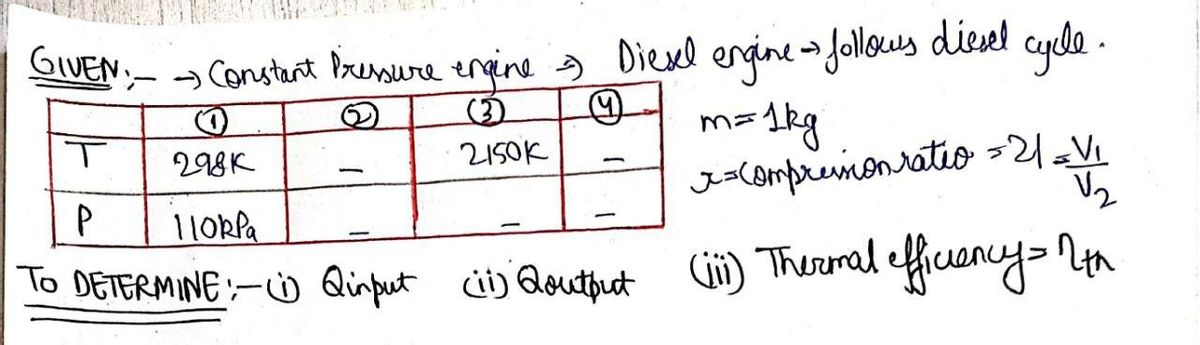 GIVEN:- → Constant Pressure engine ⇒ Diesel engine → follows diesel cycle.
① ② ③ ④
T 298K - 2150K -
P 110kPa - - -
m=1kg
r=compression ratio =21 = V1/V2
To DETERMINE:-(i) Qinput (ii) Qoutput (iii) Thermal efficiency= ηth